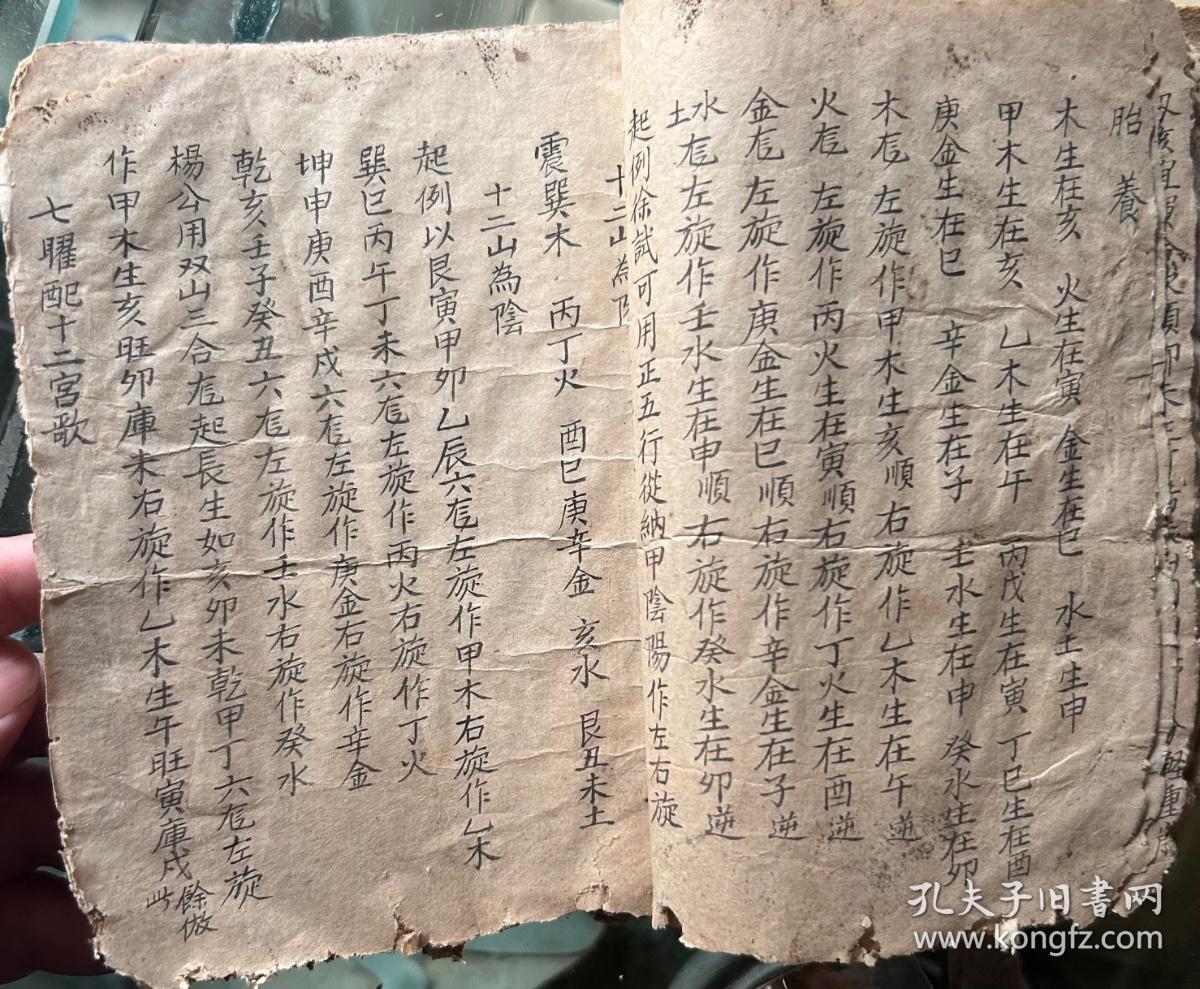 胎 養
木生在亥 火生在寅 金生在巳 水土生申
甲木生在亥 乙木生在午 丙戊生在寅 丁巳生在酉
庚金生在巳 辛金生在子 壬水生在申 癸水生在卯
木龙 左旋作甲木生亥順 右旋作乙木生在午 逆
火龙 左旋作丙火生在寅順 右旋作丁火生在酉 逆
金龙 左旋作庚金生在巳順 右旋作辛金生在子 逆
水土龙左旋作壬水生在申順 右旋作癸水生在卯 逆
起例徐試可用正五行從納甲陰陽作左右旋
十二山為陰
震巽木 丙丁火 酉巳庚辛金 亥水 艮丑未土
十二山為陰
起例以艮寅甲卯乙辰六龙左旋作甲木右旋作乙木
巽巳丙午丁未六龙左旋作丙火右旋作丁火
坤申庚酉辛戌六龙左旋作庚金右旋作辛金
乾亥壬子癸丑六龙左旋作壬水右旋作癸水
楊公用双山三合龙起長生如亥卯未乾甲丁六龙左旋
作甲木生亥旺卯庫未右旋作乙木生午旺寅庫戌餘倣此
七曜配十二宮歌
孔夫子旧书网
www.kongfz.com